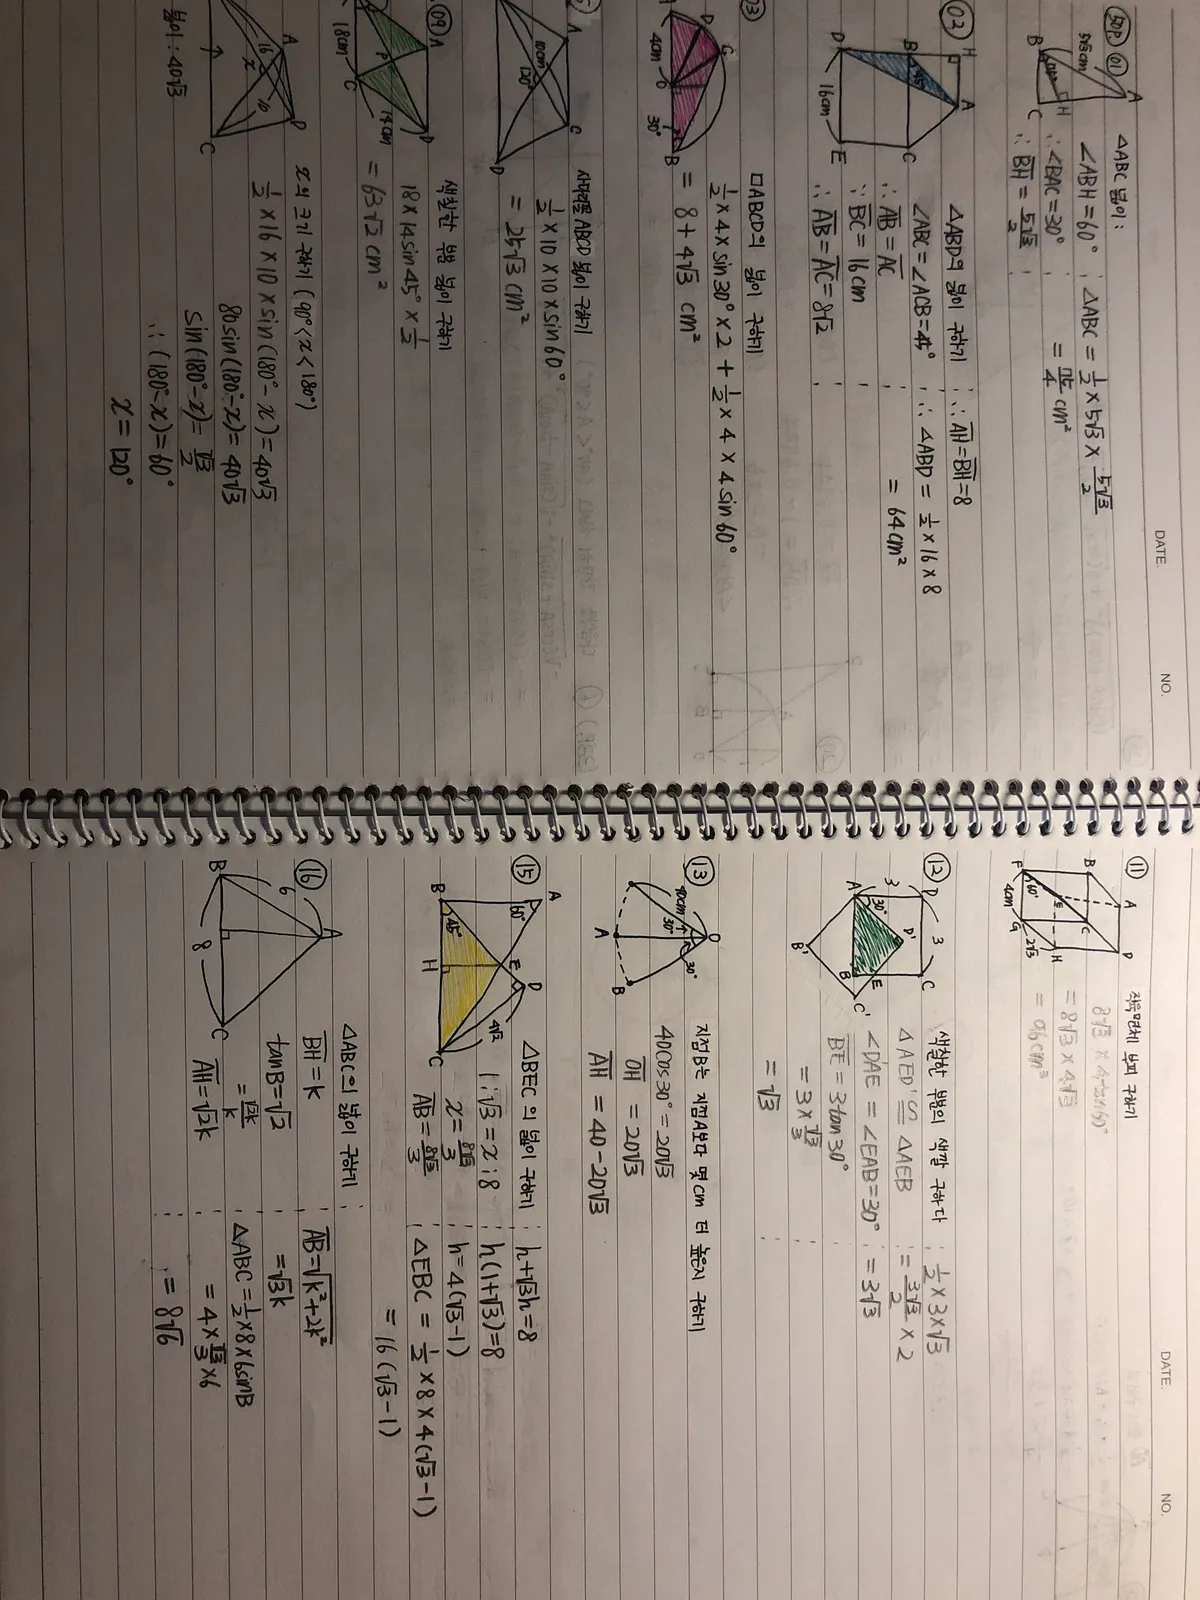 DATE.
NO.
01
A
5√3cm
B
H
C
△ABC 넓이 :
∠ABH = 60°
∴ ∠BAC = 30°
∴ BH = 5√3/2
△ABC = 1/2 × 5√3 × 5√3/2
cm²
02
H
A
B
45°
C
D
16cm
E
△ABD의 넓이 구하기
∠ABC = ∠ACB = 45°
∴ AB = AC
∴ BC = 16cm
∴ AB = AC = 8√2
∴ AH = BH = 8
∴ △ABD = 1/2 × 16 × 8
= 64cm²
03
D
C
4cm
O
30°
B
□ABCD의 넓이 구하기
1/2 × 4 × 4 × sin30° × 2 + 1/2 × 4 × 4 sin60°
= 8 + 4√3 cm²
A
10cm
120°
C
D
사다리꼴 ABCD 넓이 구하기
1/2 × 10 × 10 × sin60°
= 25√3 cm²
09
A
P
18cm
C
14cm
D
색칠한 부분 넓이 구하기
18 × 14 sin45° × 1/2
= 63√2 cm²
A
16
x
10
D
C
넓이 : 40√3
x의 크기 구하기 (90° < x < 180°)
1/2 × 16 × 10 × sin(180° - x) = 40√3
80 sin(180° - x) = 40√3
sin(180° - x) = √3/2
∴ (180° - x) = 60°
x = 120°
DATE.
NO.
11
A
B
C
D
E
F
60°
4cm
G
2√3
H
직육면체 부피 구하기
8√3 × 4tan60°
= 8√3 × 4√3
= 96cm³
12
D
3
3
A
30°
D'
C
B
E
B'
C'
색칠한 부분의 색깔 구하다
△AED' ≡ △AEB
∠D'AE = ∠EAB = 30°
BE = 3tan30°
= 3 × √3/3
= √3
1/2 × 3 × √3
= 3√3/2 × 2
= 3√3
13
O
40cm
30°
30°
A
B
지점B는 지점A보다 몇 cm 더 높은지 구하기
40cos30° = 20√3
OH = 20√3
AH = 40 - 20√3
15
A
60°
D
E
4√2
B
45°
H
C
△BEC의 넓이 구하기
1 : √3 = x : 8
x = 8√3/3
AB = 8√3/3
h + √3h = 8
h(1+√3) = 8
h = 4(√3-1)
△EBC = 1/2 × 8 × 4(√3-1)
= 16(√3-1)
16
A
6
B
8
C
△ABC의 넓이 구하기
BH = k
tanB = √2
= √2k/k
AH = √2k
AB = √k²+2k²
= √3k
△ABC = 1/2 × 8 × 6sinB
= 4 × √6/3 × 6
= 8√6